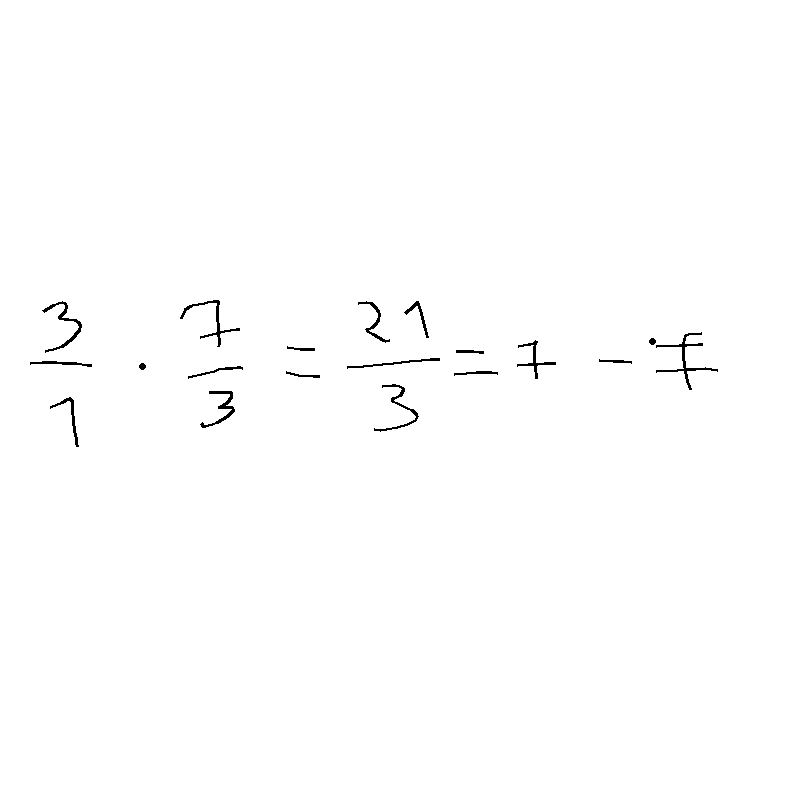 3/1 · 7/3 = 21/3 = 7 -